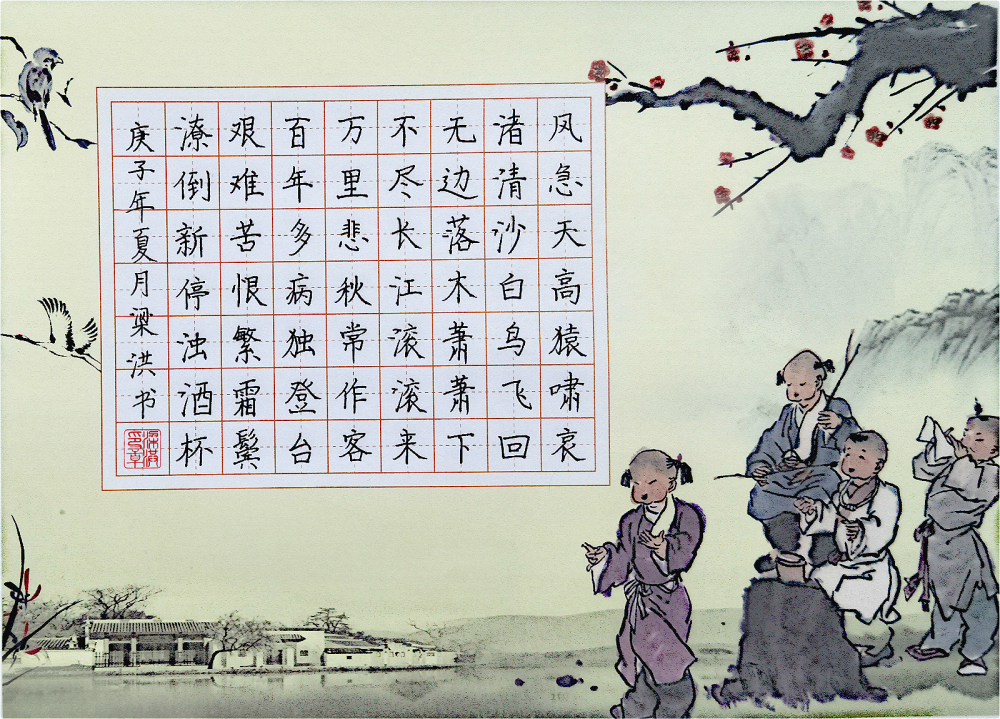 风急天高猿啸哀
渚清沙白鸟飞回
无边落木萧萧下
不尽长江滚滚来
万里悲秋常作客
百年多病独登台
艰难苦恨繁霜鬓
潦倒新停浊酒杯
庚子年夏月梁洪书